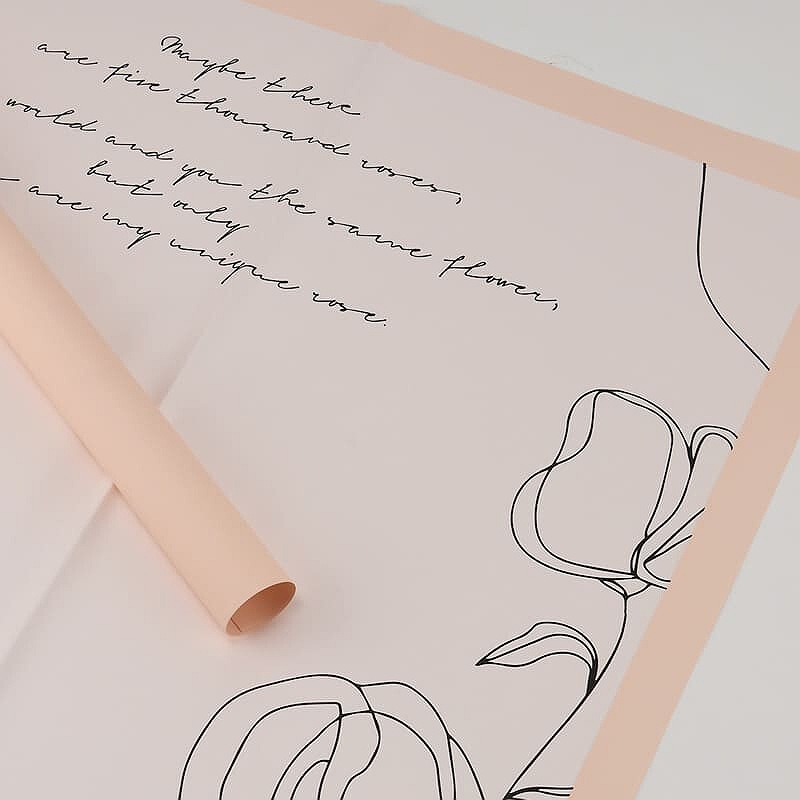 Maybe there
are five thousand roses,
world and you the same flower,
but only
are my unique rose.